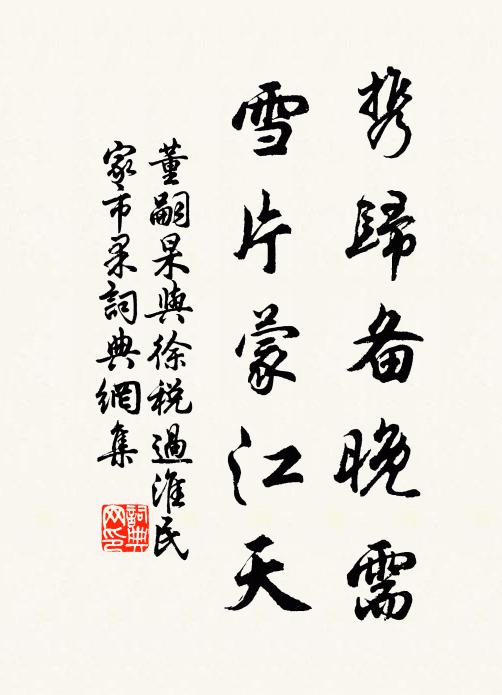 携歸备晚需
雪片蒙江天
董嗣杲與徐税過淮民
家市果詞典網集
詞典
网印